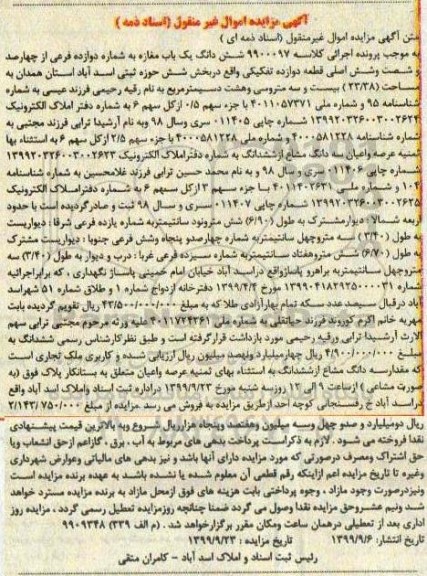 آگهی مزایده اموال غیر منقول (اسناد ذمه )
متن آگهی مزایده اموال غیرمنقول (اسناد ذمه ای )
به موجب پرونده اجرائی کلاسه ۹۹۰۰۰۹۷ شش دانگ یک باب مغازه به شماره دوازده فرعی از چهارصد
و شصت وشش اصلی قطعه دوازده تفکیکی واقع دربخش شش حوزه ثبتی اسد آباد استان همدان به
مساحت (۲۳/۳۸) بیست و سه متروسی وهشت دسیمترمربع به نام رقیه رحیمی فرزند عیسی به شماره
شناسنامه ۹۵ و شماره ملی ۴۰۱۱۰۵۷۳۷۱ با جزء سهم ۰/۵ ازکل سهم ۶ به شماره دفتر املاک الکترونیک
۱۳۹۹۲۰۳۲۶۰۰۳۰۰۲۶۲۴ شماره چاپی ۰۱۱۴۰۵ سری و سال ۹۸ وبه نام آرشیدا ترابی فرزند مجتبی به
شماره شناسنامه ۴۰۰۰۵۸۱۲۲۸ و شماره ملی ۴۰۰۰۵۸۱۲۲۸ با جزء سهم ۲/۵ ازکل سهم ۶ به استثناء بهای
ثمنیه عرصه واعیان سه دانگ مشاع ازششدانگ به شماره دفتراملاک الکترونیک ۱۳۹۹۲۰۳۲۶۰۰۳۰۰۲۶۲۳
شماره چاپی ۰۱۱۴۰۶ سری و سال ۹۸ و به نام محمد حسین ترابی فرزند غلامحسین به شماره شناسنامه
۱۰۴ و شماره ملی ۴۰۱۱۴۰۲۶۳۱ با جزء سهم ۳ ازکل سهم ۶ به شماره دفتراملاک الکترونیک
۱۳۹۹۲۰۳۲۶۰۰۳۰۰۲۶۲۵ شماره چاپی ۰۱۱۴۰۷ سری و سال ۹۸ ثبت و صادرگردیده است با حدود
اربعه شمالا : دیوارمشترک به طول (۶/۹۰) شش مترونود سانتیمتربه شماره یازده فرعی شرقا : دیواریست
به طول (۳/۴۰) سه متروچهل سانتیمتربه شماره چهارصدو پنجاه وشش فرعی جنوبا : دیواریست مشترک
به طول (۶/۷۰) شش متروهفتاد سانتیمتربه شماره سیزده فرعی غربا : درب و دیوار به طول (۳/۴۰) سه
متروچهل سانتیمتربه براهرو پاساژواقع دراسد آباد خیابان امام خمینی پاساژ نگهداری ، که برابراجرائیه
شماره ۱۳۹۹۰۴۱۸۲۹۲۵۰۰۰۰۳۱ مورخ ۱۳۹۹/۴/۲ دفترخانه ازدواج شماره ۱ و طلاق شماره ۵۱ شهراسد
آباد درقبال سیصد عدد سکه تمام بهارآزادی طلا که به مبلغ ۴۲/۵۰۰/۰۰۰/۰۰۰ ریال تقویم گردیده بابت
مهریه خانم اکرم کوروند فرزند حیاتقلی به شماره ملی ۴۰۱۱۷۲۴۲۶۱ علیه ورثه مرحوم مجتبی ترابی سهم
الارث آرشیدا ترابی ورقیه رحیمی مورد بازداشت قرارگرفته است و طبق نظرکارشناس رسمی ششدانگ به
مبلغ ۴/۹۰۰/۰۰۰/۰۰۰ ریال چهارمیلیارد ونهصد میلیون ریال ارزیابی شده و کاربری ملک تجاری است
که مقدارسه دانگ مشاع ازششدانگ به استثناء بهای ثمنیه عرصه واعیان متعلق به بستانکار پلاک فوق (به
صورت مشاعی ) ازساعت ۹ الی ۱۲ روزسه شنبه مورخ ۱۳۹۹/۹/۲۳ دراداره ثبت اسناد واملاک اسد آباد واقع
دراسد آباد خ رفسنجانی کوچه احد ازطریق مزایده به فروش می رسد .مزایده از مبلغ ۲/۱۴۳/۷۵۰/۰۰۰
ریال دومیلیارد و صدو چهل وسه میلیون وهفتصد وپنجاه هزارریال شروع وبه بالاترین قیمت پیشنهادی
نقدا فروخته می شود . لازم به ذکراست پرداخت بدهی های مربوط به آب ، برق ، گازاعم ازحق انشعاب ویا
حق اشتراک ومصرف درصورتی که مورد مزایده دارای آنها باشد و نیز بدهی های مالیاتی وعوارض شهرداری
وغیره تا تاریخ مزایده اعم ازاینکه رقم قطعی آن معلوم شده یا نشده باشد به عهده برنده مزایده است
ونیزدرصورت وجود مازاد ، وجوه پرداختی بابت هزینه های فوق ازمحل مازاد به برنده مزایده مسترد خواهد
شد ونیم عشروحق مزایده نقدا وصول می گردد ضمنا چنانچه روزمزایده تعطیل رسمی گردد ، مزایده روز
اداری بعد از تعطیلی درهمان ساعت ومکان مقرر برگزارخواهد شد . (م الف ۳۳۹) ۹۹۰۹۳۴۸
تاریخ انتشار : ۱۳۹۹/۹/۶ تاریخ مزایده : ۱۳۹۹/۹/۲۳
رئیس ثبت اسناد و املاک اسد آباد - کامران متقی